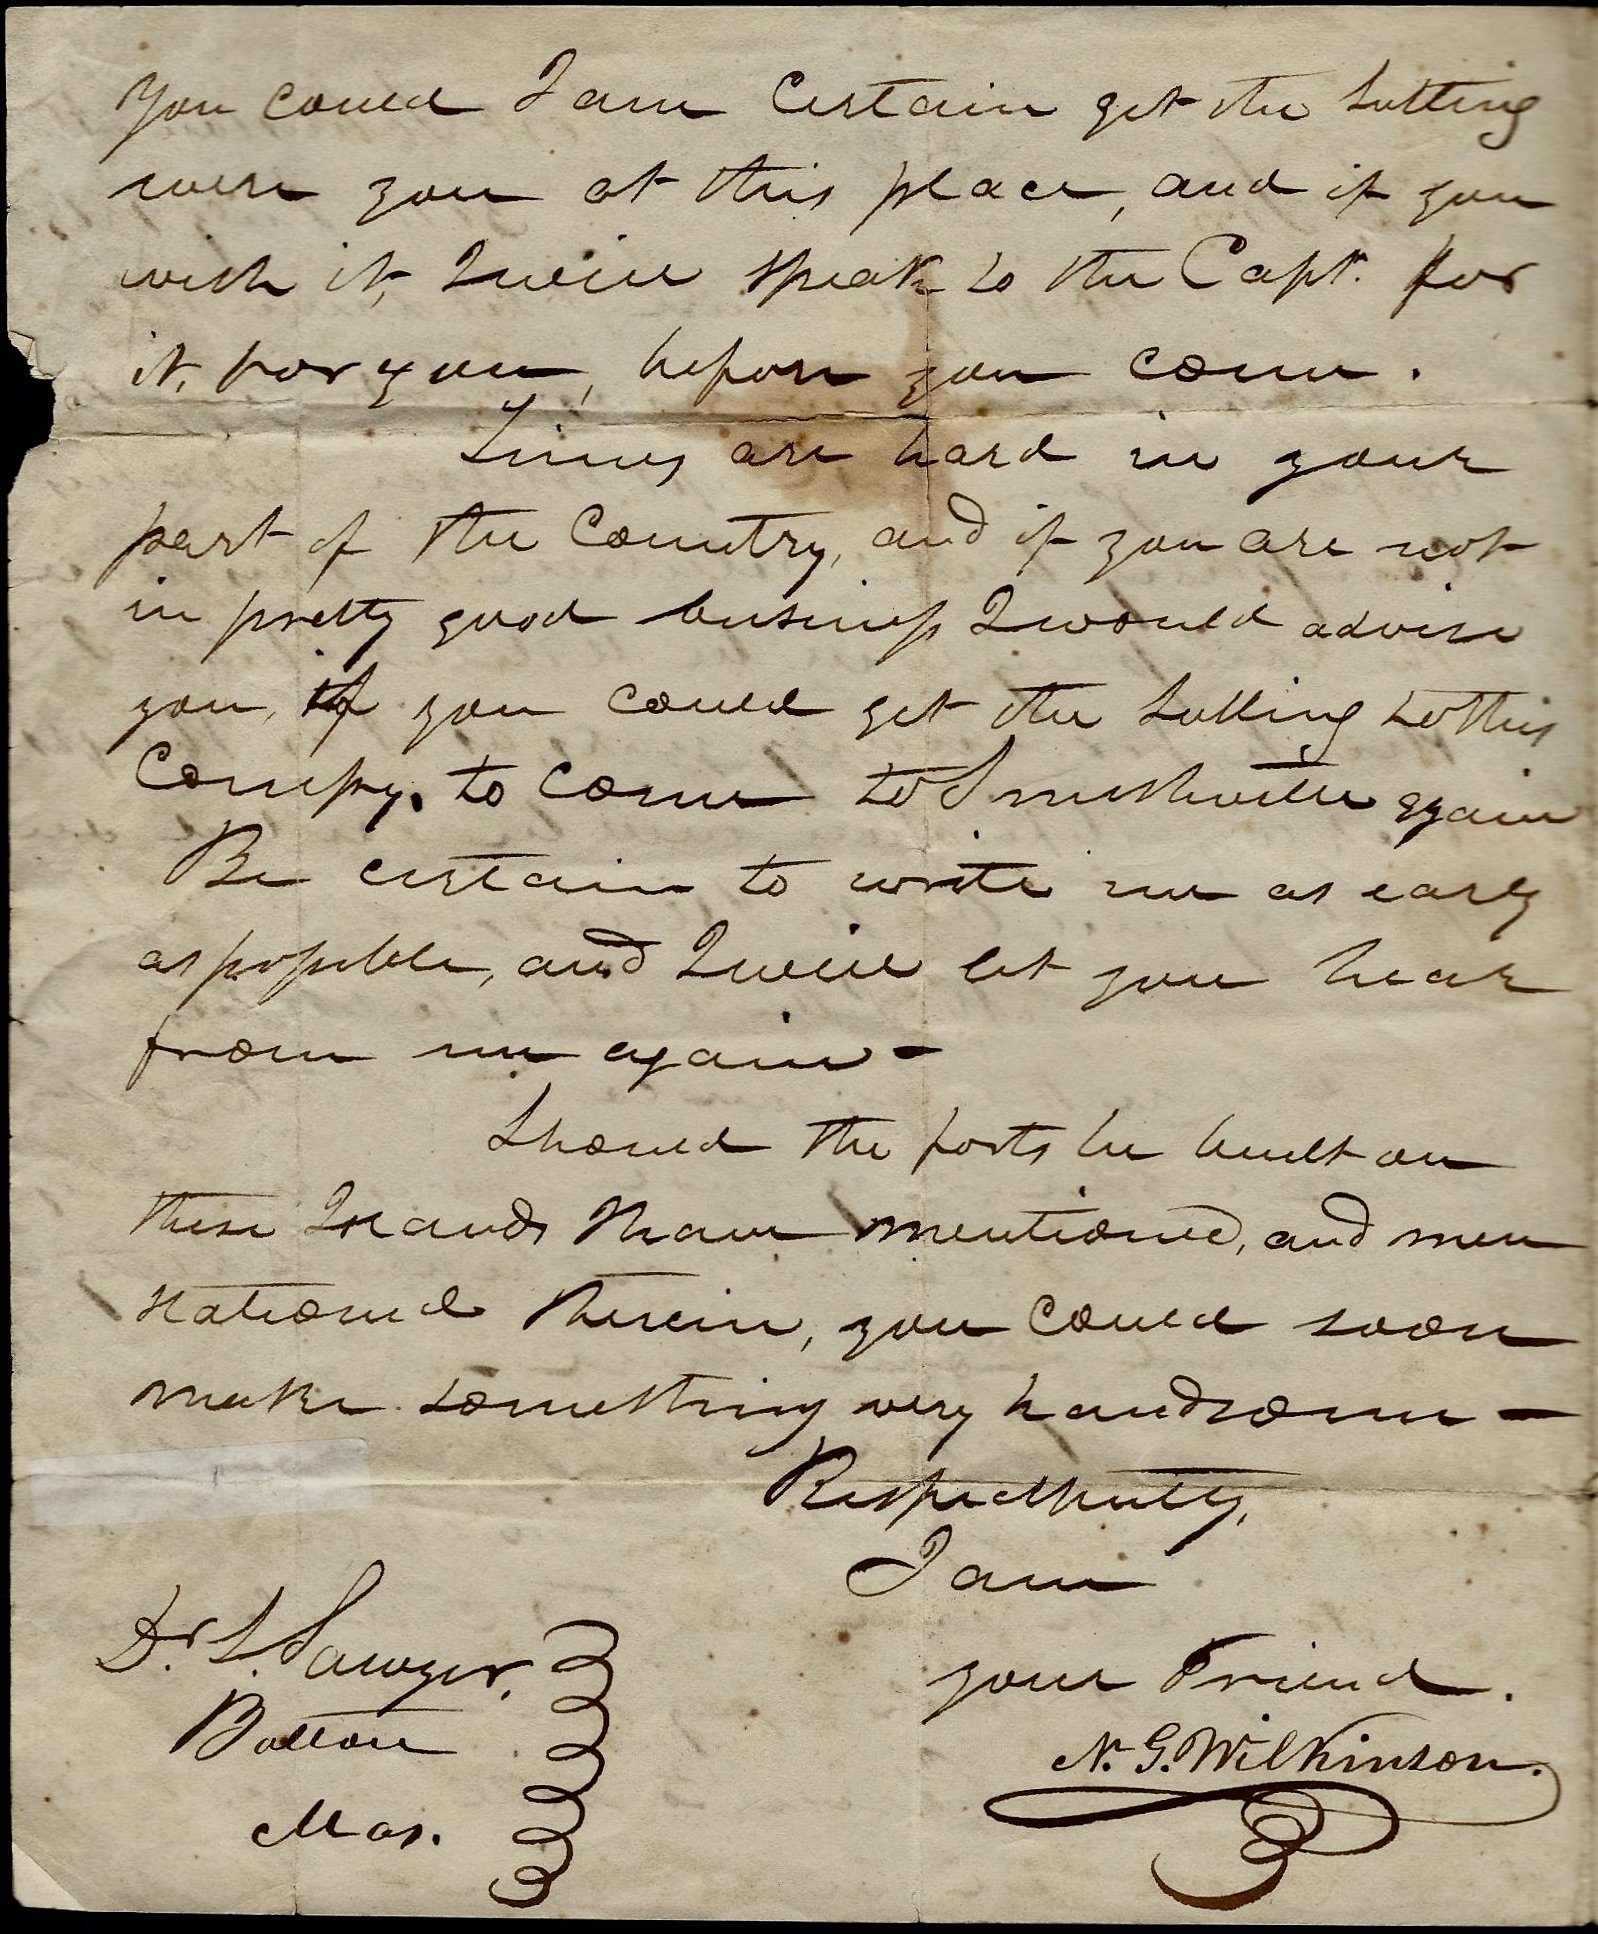 You could I am certain get the Sutling
were you at this place, and if you
wish it, I will speak to the Capt. for
it, for you, before you come.
Times are hard in your
part of the Country, and if you are not
in pretty good business I would advise
you, if you could get the Sutling to this
Compy. to come to Smithville again
Be certain to write me as early
as possible, and I will let you hear
from me again -
Should the forts be built on
these Islands I have mentioned, and men
stationed therein, you could soon
make something very handsome -
Respectfully,
I am
your Friend.
N. G. Wilkinson.
Dr. S. Sawyer,
Bolton
Mas.